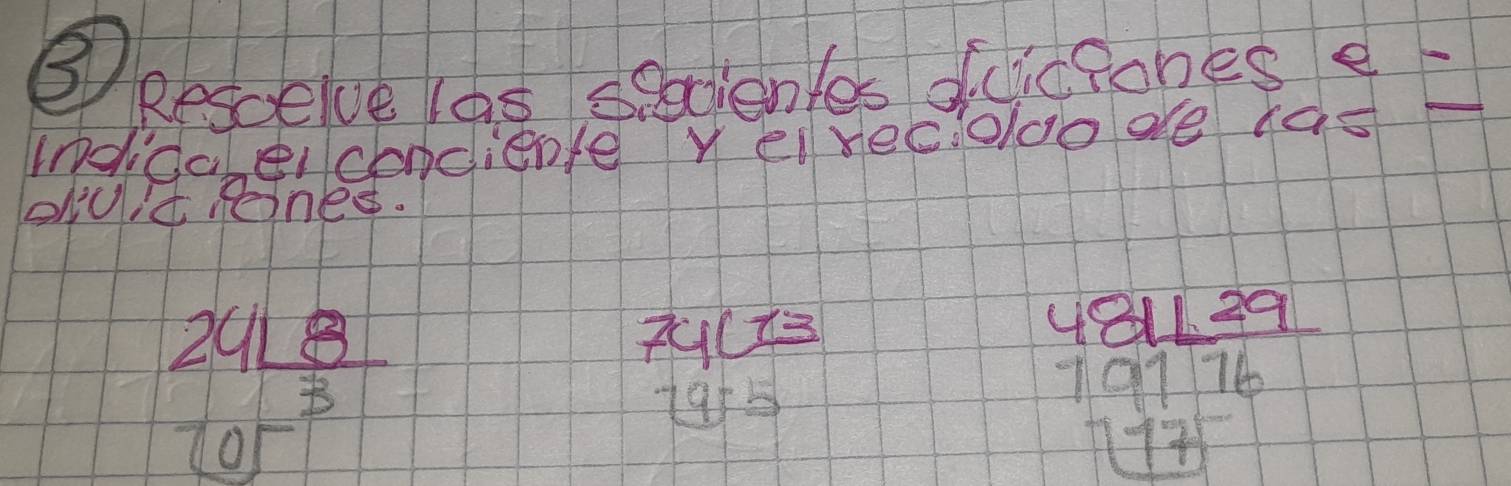 3) Resoelve las sigoientes diviciones e -
indica, el conciente y el recioloo de las -
diviciones.
24 8 74 13 481 29
3 19 5 191 16
0 17